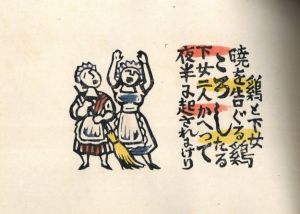 鶏と下女
暁を告ぐる鶏
ころしたる
下女二人かへって
夜半に起されけり